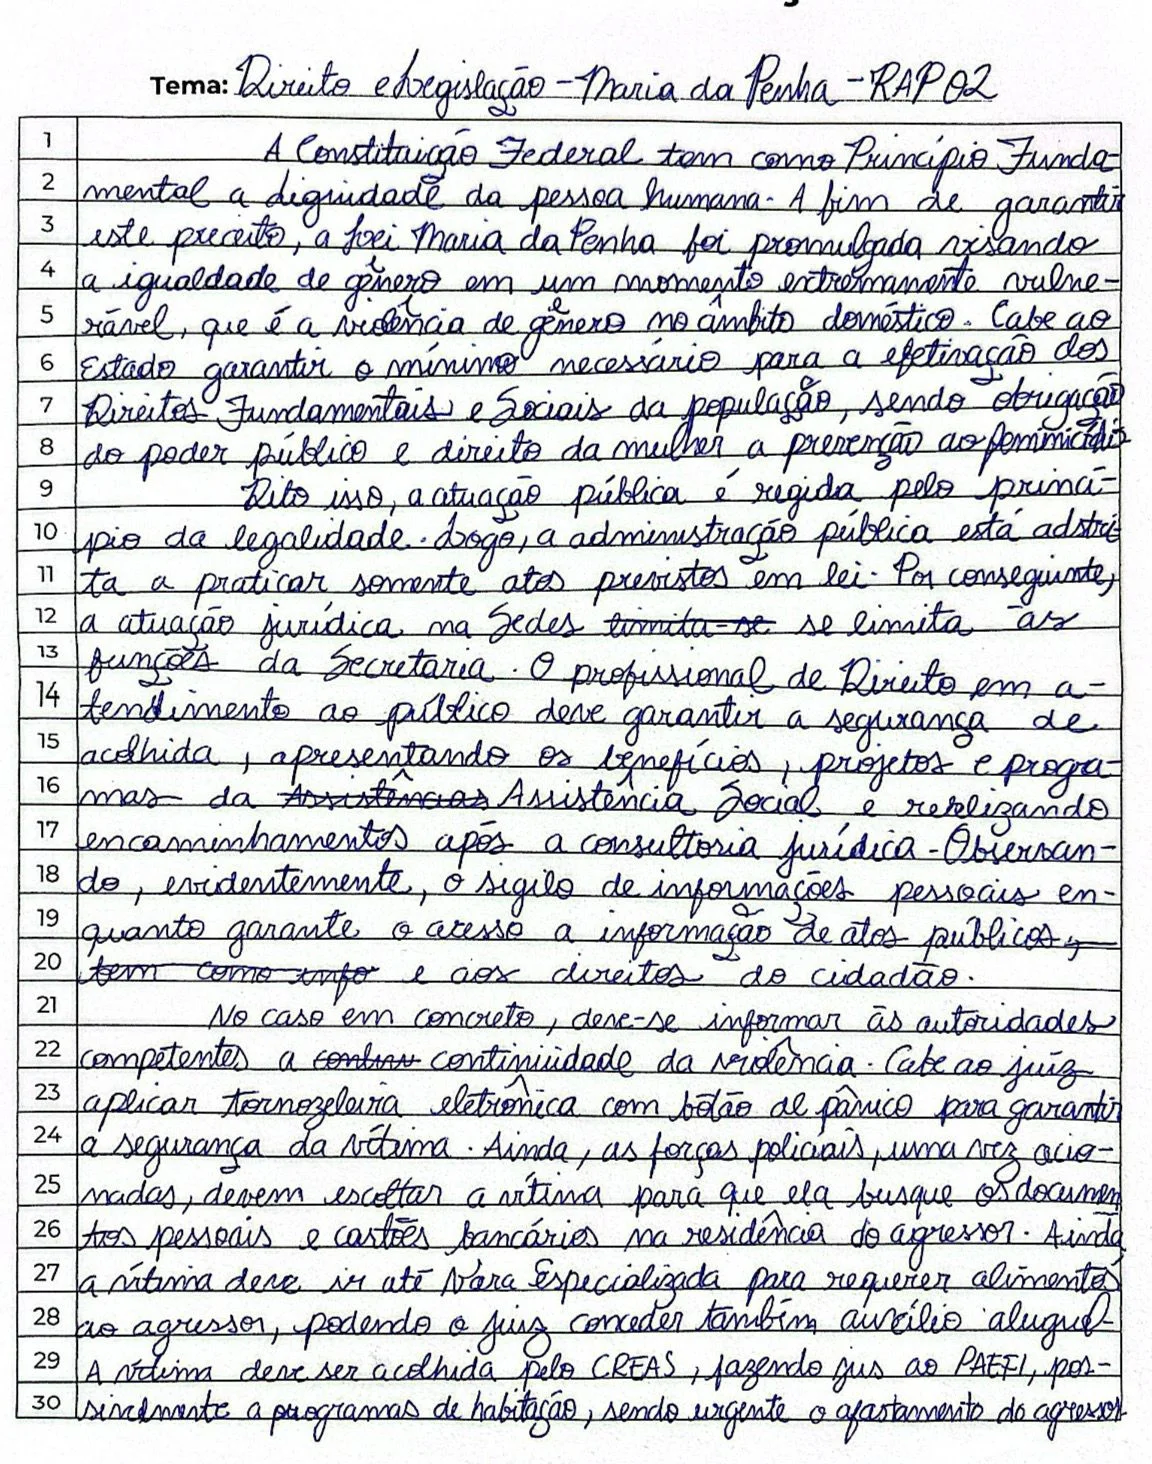 Tema: Direito e Legislação - Maria da Penha - RAP 02
1 A Constituição Federal tem como Princípio Funda-
2 mental a dignidade da pessoa humana. A fim de garantir
3 este preceito, a Lei Maria da Penha foi promulgada visando
4 a igualdade de gênero em um momento extremamente vulne-
5 rável, que é a violência de gênero no âmbito doméstico. Cabe ao
6 Estado garantir o mínimo necessário para a efetivação dos
7 Direitos Fundamentais e Sociais da população, sendo obrigação
8 do poder público e direito da mulher a prevenção ao feminicídio
9 Dito isso, a atuação pública é regida pelo princí-
10 pio da legalidade. Logo, a administração pública está adstri
11 ta a praticar somente atos previstos em lei. Por conseguinte,
12 a atuação jurídica na Sedes limita-se se limita às
13 funções da Secretaria. O profissional de Direito em a-
14 tendimento ao público deve garantir a segurança de
15 acolhida, apresentando os benefícios, projetos e progra-
16 mas da Assistências Assistência Social e realizando
17 encaminhamentos após a consultoria jurídica. Observan-
18 do, evidentemente, o sigilo de informações pessoais en-
19 quanto garante o acesso a informação de atos públicos,
20 tem como info e aos direitos do cidadão.
21 No caso em concreto, deve-se informar às autoridades
22 competentes a continuidade da violência. Cabe ao juiz
23 aplicar tornozeleira eletrônica com botão de pânico para garantir
24 a segurança da vítima. Ainda, as forças policiais, uma vez acio-
25 nadas, devem escoltar a vítima para que ela busque os documen
26 tos pessoais e cartões bancários na residência do agressor. Ainda
27 a vítima deve ir até Vara Especializada para requerer alimentos
28 ao agressor, podendo o juiz conceder também auxílio aluguel
29 A vítima deve ser acolhida pelo CREAS, fazendo jus ao PAEFI, pos-
30 sivelmente a programas de habitação, sendo urgente o afastamento do agressor